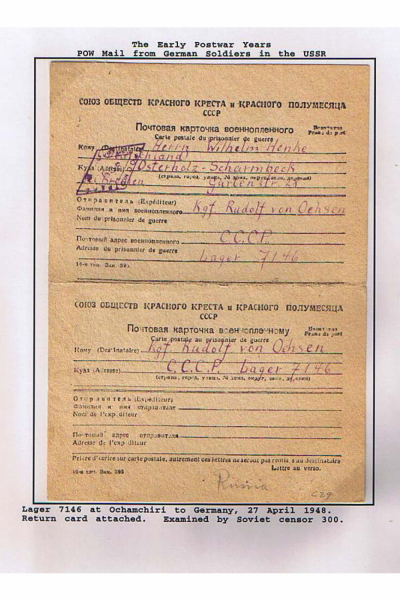 The Early Postwar Years
POW Mail from German Soldiers in the USSR
СОЮЗ ОБЩЕСТВ КРАСНОГО КРЕСТА и КРАСНОГО ПОЛУМЕСЯЦА
СССР
Почтовая карточка военнопленного
Бесплатно
Franc de port
Carte postale du prisonnier de guerre
Кому (Destinataire) Herrn Wilhelm Henke
Куда (Adresse) Osterholz-Scharmbeck
(страна, город, улица, № дома, округ, село, деревня)
Gartenstr.
Отправитель (Expéditeur)
Фамилия и имя военнопленного Kgf. Rudolf von Oehsen
Nom du prisonnier de guerre
Почтовый адрес военнопленного C.C.C.P.
Adresse du prisonnier de guerre
Lager 7146
СОЮЗ ОБЩЕСТВ КРАСНОГО КРЕСТА и КРАСНОГО ПОЛУМЕСЯЦА
СССР
Почтовая карточка военнопленному
Бесплатно
Franc de port
Carte postale au prisonnier de guerre
Кому (Destinataire) Kgf. Rudolf von Oehsen
Куда (Adresse) C.C.C.P. Lager 7146
(страна, город, улица, № дома, округ, село, деревня)
Отправитель (Expéditeur)
Фамилия и имя отправителя
Nom de l'expéditeur
Почтовый адрес отправителя
Adresse de l'expéditeur
Prière d'écrire sur carte postale, autrement ces lettres ne seront pas remises au destinataire
Lettre au verso.
Russia
Lager 7146 at Ochamchiri to Germany, 27 April 1948.
Return card attached. Examined by Soviet censor 300.